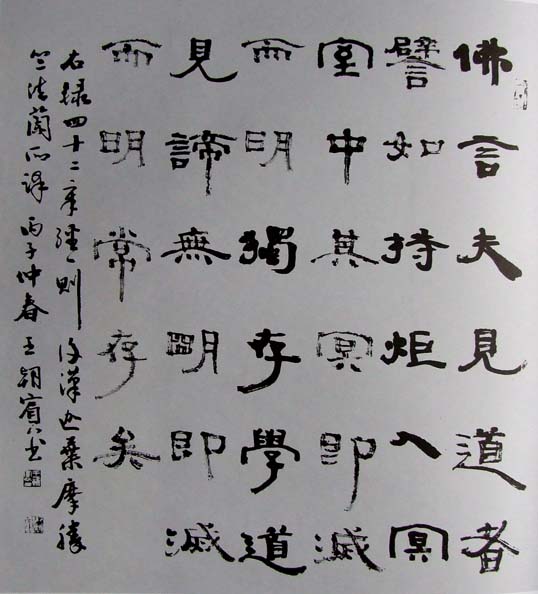 佛言夫見道者
譬如持炬入冥
室中其冥即滅
而明獨存學道
見諦無明即滅
而明常存矣
右録四十二章經一則後漢迦葉摩騰
竺法蘭所譯丙子仲春王賓書